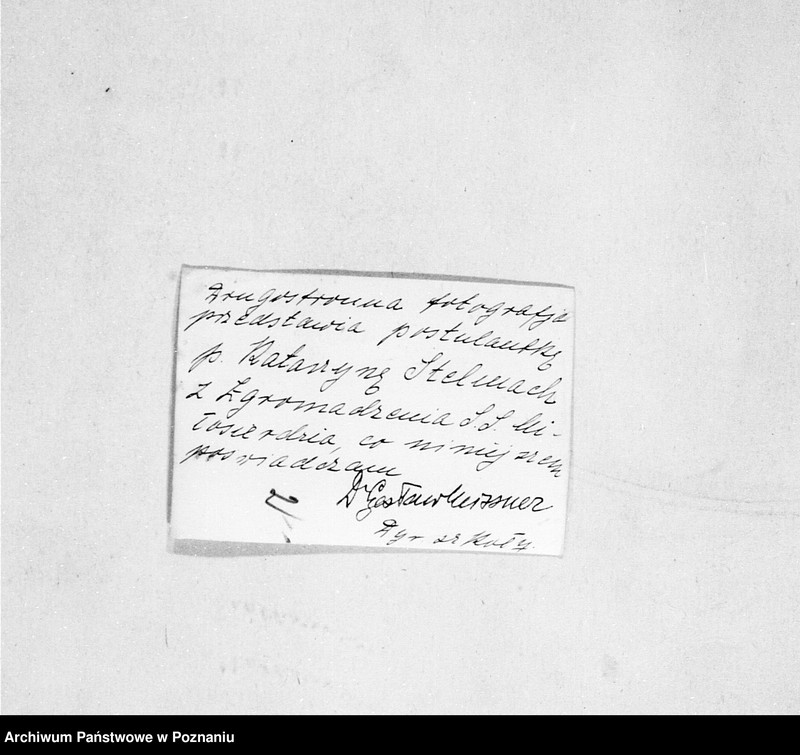 Drugostronna fotografja
przedstawia postulantkę
p. Katarzynę Stelmach
z Zgromadzenia S.S. Mi-
łosierdzia, co niniejszem
poświadczam
Dr Czesław Meissner
Dyr szkoły.
Archiwum Państwowe w Poznaniu